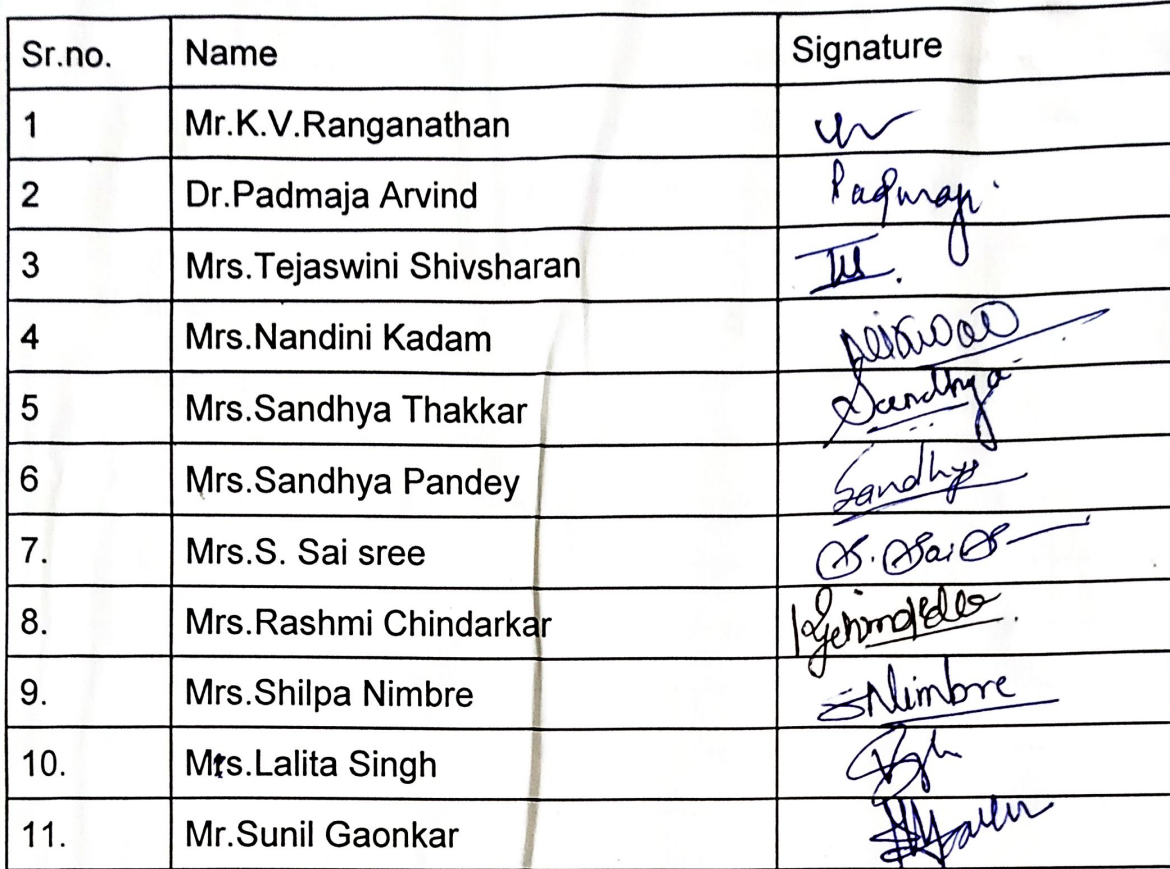 Sr.no. Name Signature
1 Mr.K.V.Ranganathan
2 Dr.Padmaja Arvind Padmaja
3 Mrs.Tejaswini Shivsharan
4 Mrs.Nandini Kadam
5 Mrs.Sandhya Thakkar Sandhya
6 Mrs.Sandhya Pandey Sandhya
7. Mrs.S. Sai sree S. Sai S
8. Mrs.Rashmi Chindarkar
9. Mrs.Shilpa Nimbre SNimbre
10. Mrs.Lalita Singh
11. Mr.Sunil Gaonkar